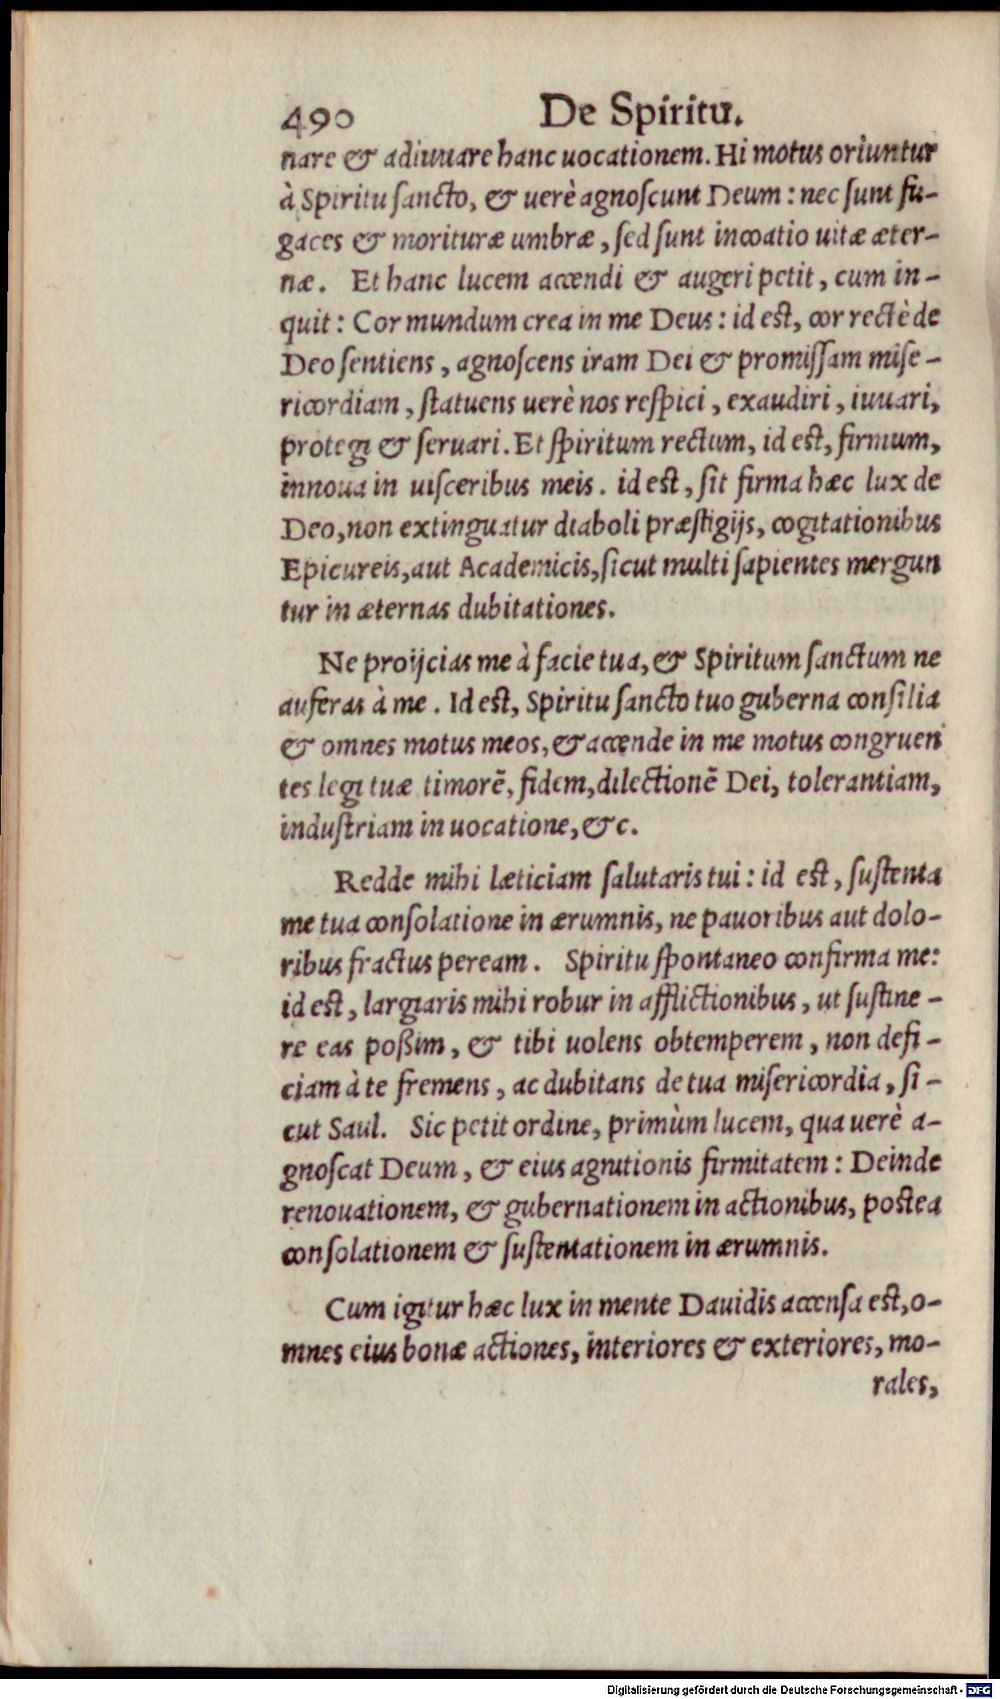 490 De Spiritu.
nare & adiuuare hanc uocationem. Hi motus oriuntur
à Spiritu ſancto, & uerè agnoſcunt Deum: nec ſunt fu-
gaces & morituræ umbræ, ſed ſunt incoatio uitæ æter-
næ. Et hanc lucem accendi & augeri petit, cum in-
quit: Cor mundum crea in me Deus: id est, cor rectè de
Deo ſentiens, agnoſcens iram Dei & promiſſam miſe-
ricordiam, ſtatuens uerè nos reſpici, exaudiri, iuuari,
protegi & ſeruari. Et ſpiritum rectum, id est, firmum,
innoua in uiſceribus meis. id est, ſit firma hæc lux de
Deo, non extinguatur diaboli præſtigijs, cogitationibus
Epicureis, aut Academicis, ſicut multi ſapientes mergun
tur in æternas dubitationes.
Ne proijcias me à facie tua, & Spiritum ſanctum ne
auferas à me. Id est, Spiritu ſancto tuo guberna conſilia
& omnes motus meos, & accende in me motus congruen
tes legi tuæ timorē, fidem, dilectionē Dei, tolerantiam,
induſtriam in uocatione, &c.
Redde mihi læticiam ſalutaris tui: id est, ſuſtenta
me tua conſolatione in ærumnis, ne pauoribus aut dolo-
ribus fractus peream. Spiritu ſpontaneo confirma me:
id est, largiaris mihi robur in afflictionibus, ut ſuſtine-
re eas poßim, & tibi uolens obtemperem, non defi-
ciam à te fremens, ac dubitans de tua miſericordia, ſi-
cut Saul. Sic petit ordine, primùm lucem, qua uerè a-
gnoſcat Deum, & eius agnitionis firmitatem: Deinde
renouationem, & gubernationem in actionibus, postea
conſolationem & ſuſtentationem in ærumnis.
Cum igitur hæc lux in mente Dauidis accenſa est, o-
mnes eius bonæ actiones, interiores & exteriores, mo-
rales,
Digitalisierung gefördert durch die Deutsche Forschungsgemeinschaft - DFG